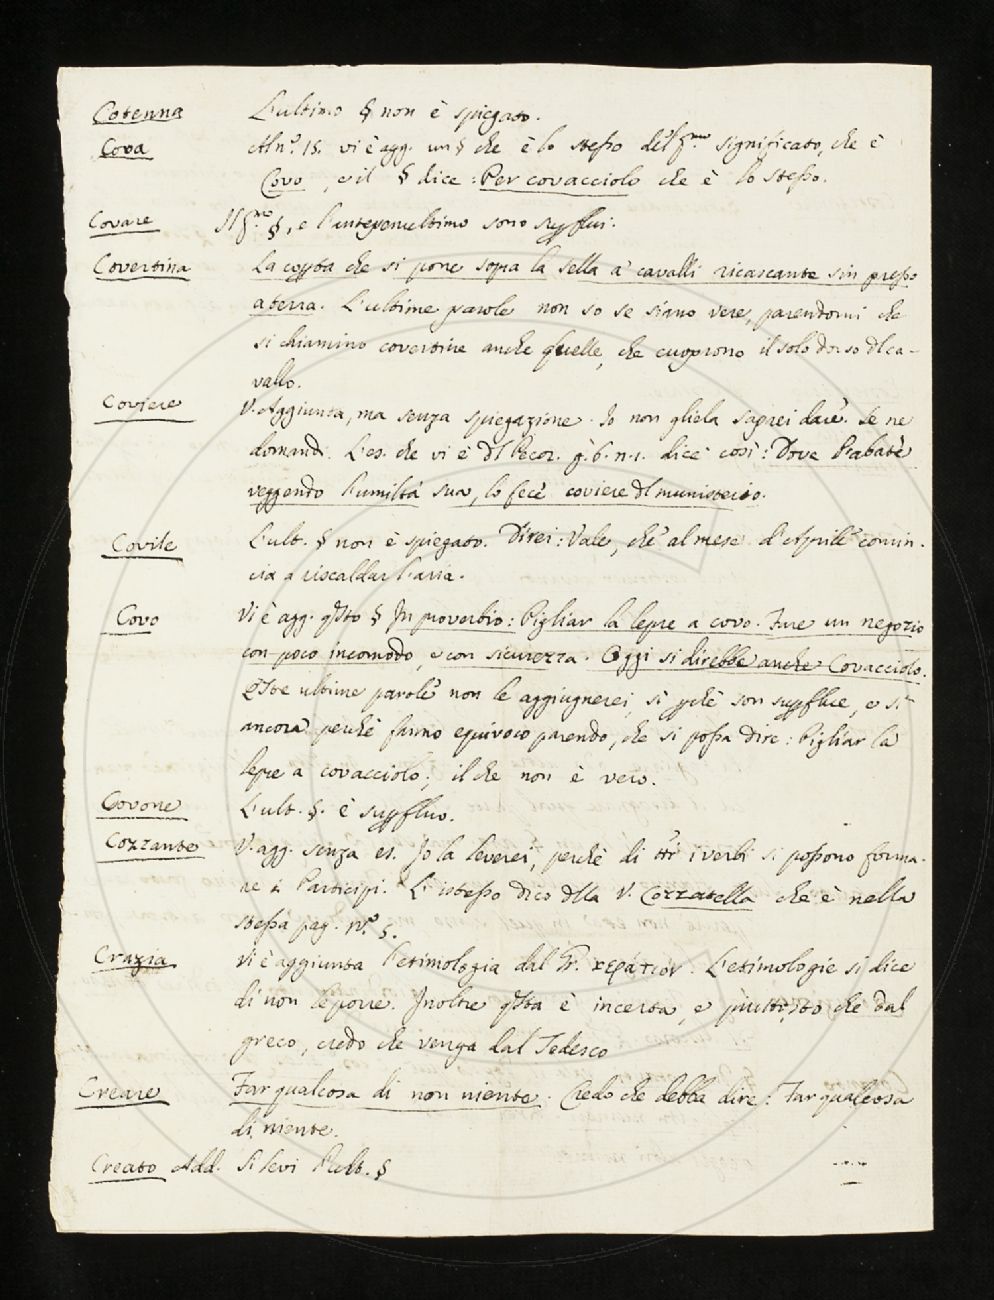 Cotenna L'ultimo § non è spiegato.
Cova Al n.° 15. vi è agg. un § che è lo stesso del p.mo significato, che è
Covo, e il § dice: Per covacciolo che è lo stesso.
Covare Il p.mo §, e l'antepenultimo sono supflui.
Covertina La copta che si pone sopra la sella a' cavalli ricascante sin presso
a terra. L'ultime parole non so se siano vere, parendomi che
si chiamino covertine anche quelle, che cuoprono il solo dorso dl ca-
vallo.
Coviere V. Aggiunta, ma senza spiegazione. Io non gliela saprei dare. Se ne
domandi. L'es. che vi è dl Pecor. g. 6. n. 1. dice così: Dove l'abate
veggendo l'umiltà sua, lo fece coviere dl munisterio.
Covile L'ult. § non è spiegato. Direi: Vale, che al mese d'Aprile comin-
cia a riscaldar l'aria.
Covo Vi è agg. qsto § In proverbio: Pigliar la lepre a covo. Fare un negozio
con poco incomodo, e con sicurezza. Oggi si direbbe anche Covacciolo.
Qste ultime parole non le aggiugnerei, sì pchè son supflue, e sì
ancora perchè fanno equivoco parendo, che si possa dire: Pigliar la
lepre a covacciolo; il che non è vero.
Covone L'ult. §. è supfluo.
Cozzante V. agg. senza es. Io la leverei, perchè di tti i verbi si possono forma-
re i Participj. L'istesso dico dlla V. Cozzatella che è nella
stessa pag. n.° 5.
Crazia Vi è aggiunta l'etimologia dal Gr. κεράτιον. L'etimologie si dice
di non le porre. Inoltre qsta è incerta, e piuttosto che dal
greco, credo che venga dal Tedesco
Creare Far qualcosa di non niente. Credo che debba dire: Far qualcosa
di niente.
Creato Add. Si levi l'ult. §